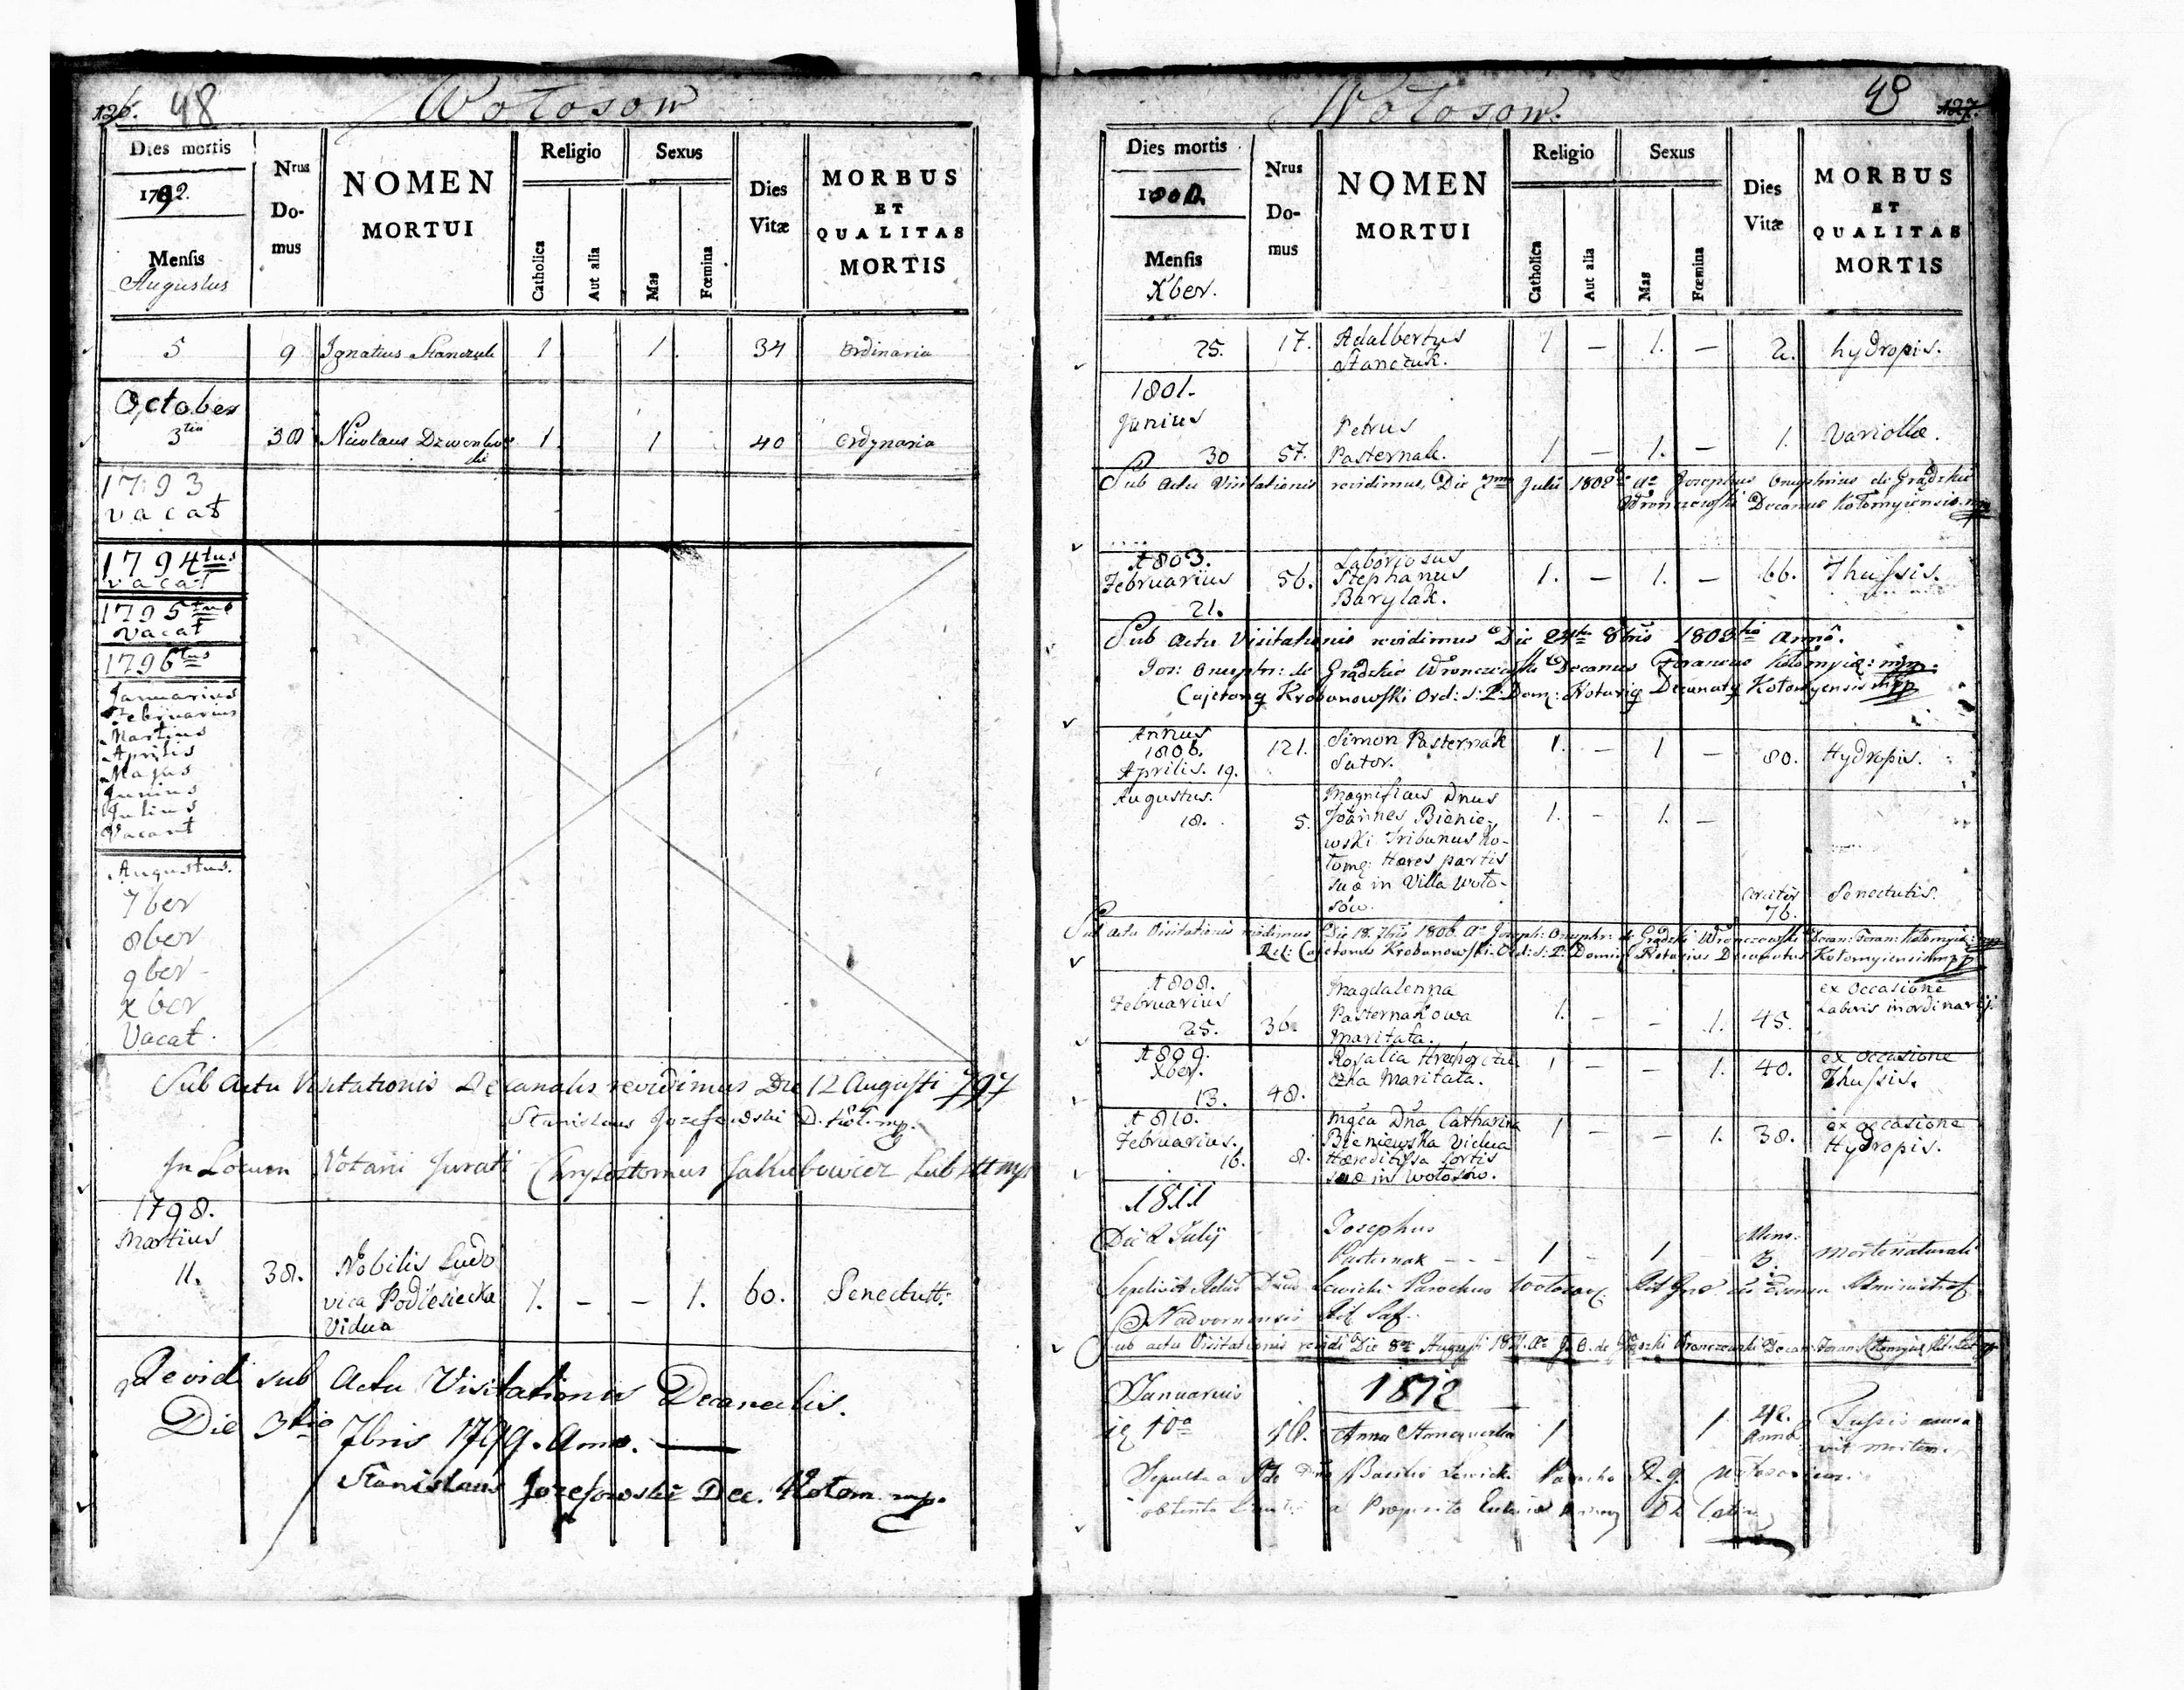 126. 48
Wołosow
Dies mortis
1792.
Mensis
Augustus
Nrus
Do-
mus
NOMEN
MORTUI
Religio
Catholica
Aut alia
Sexus
Mas
Fœmina
Dies
Vitæ
MORBUS
ET
QUALITAS
MORTIS
5 9 Ignatius Stanczuk 1 1. 34 Ordinaria
October
3tia 38 Nicolaus 1. 1 40 Ordynaria
1793
vacat
1794tus
vacat
1795tus
vacat
1796tus
Januarius
Februarius
Martius
Aprilis
Majus
Junius
Julius
Vacant
Augustus.
7ber
8ber
9ber
xber
Vacat.
Sub Actu Visitationis Decanalis revidimus Die 12 Augusti 797
Stanislaus Jozefowski D. Koł. mp.
In Locum Notarii Jurati Chrysostomus Jakubowicz
1798.
Martius
11. 38. Nobilis Ludo
vica Podlesiecka
Vidua
1. - - 1. 60. Senectutt:
Revidi sub Actu Visitationis Decanalis.
Die 3tia 7bris 1799. Anno.
Stanislaus Jozefowski Dec. Kołom. mp.
Wołosow.
49 127.
Dies mortis
1800.
Mensis
Xber.
Nrus
Do-
mus
NOMEN
MORTUI
Religio
Catholica
Aut alia
Sexus
Mas
Fœmina
Dies
Vitæ
MORBUS
ET
QUALITAS
MORTIS
25. 17. Adalbertus
Stanczuk. 1 — 1. — 2. hydropis.
1801.
Junius Petrus
30 57. Pasternak. 1 — 1. — 1. Variollæ.
Sub Actu Visitationis revidimus, Die Julii 1802 Ao Josephus Onuphrius de Grądzkie
Wronczewski Decanus Kołomyiensis. mp
1803.
Februarius
21.
56. Laboriosus
Stephanus
Barylak.
1. — 1. — 66. Thussis.
Sub Actu Visitationis revidimus Die 24ta 8bris 1803tio Anno.
Jos: Onuphr: de Grądzkie Wronczewski Decanus Foraneus Kołomyiæ: mp.
Krobanowski Ord: S: P: Dom: Decanaty Kołomyensis mpp
Annus
1806.
Aprilis. 19.
121. Simon Pasternak
Sutor.
1. — 1 — 80. Hydropis.
Augustus.
18. 5. Magnificus Dnus
Joannes Bienie-
wski Tribunus Ko-
łomę: Hæres partis
suæ in Villa Woło-
sów.
1. — 1. —
76. Senectutis.
Sub actu Visitationis revidimus Die 18. 7bris 1806. Ao Joseph: Onuphr: de Grądzkie Wronczewski Decan: Foran: Kołomyiæ: mp
Cajetanus Krobanowski Ord: S: P: Domi: Notarius Decanatus Kołomyiensis mpp
1808.
Februarius
25. 36. Magdalenna
Pasternakowa
Maritata.
1. — — 1. 45. ex occasione
Laboris inordinarij.
1809.
Xber.
13. 48. Rosalia
Maritata.
1 — — 1. 40. ex occasione
Thussis.
1810.
Februarius.
16. 8. Mgca Dna Catharina
Bieniewska Vidua
Hæreditissa sortis
suæ in Wołosow.
1 — — 1. 38. ex occasione
Hydropis.
1811
Die 2 Julij Josephus
Pasternak - - - 1 - 1 - 3. Morte naturali
Lewicki Parochus
Nadvornensis
Sub actu Visitationis revidi Die 8va Augusti 1811. Ao
1812
Januarius
10a 16. Anna 1 1 42.
Anno. Tussis causa
vit mortem.
Sepulta a Basilio Lewicki Parocho